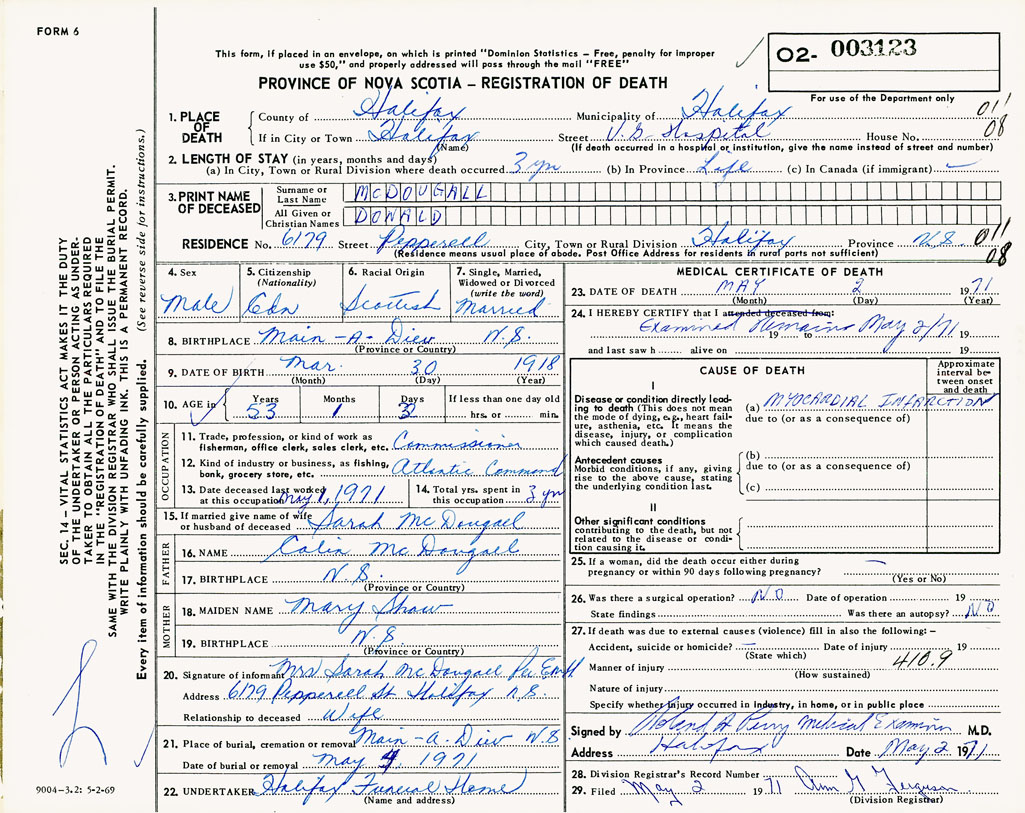 FORM 6
This form, if placed in an envelope, on which is printed "Dominion Statistics – Free, penalty for improper
use $50," and properly addressed will pass through the mail "FREE"
O2- 003123
PROVINCE OF NOVA SCOTIA – REGISTRATION OF DEATH
For use of the Department only
011
08
1. PLACE OF DEATH
County of Halifax Municipality of Halifax
If in City or Town Halifax Street V.G. Hospital House No.
(Name) (If death occurred in a hospital or institution, give the name instead of street and number)
2. LENGTH OF STAY (in years, months and days)
(a) In City, Town or Rural Division where death occurred 3 yrs (b) In Province Life (c) In Canada (if immigrant) –
3. PRINT NAME OF DECEASED
Surname or Last Name McDOUGALL
All Given or Christian Names DONALD
RESIDENCE No. 6179 Street Pepperell City, Town or Rural Division Halifax Province N.S. 011
(Residence means usual place of abode. Post Office Address for residents in rural parts not sufficient) 08
4. Sex Male
5. Citizenship (Nationality) Cdn
6. Racial Origin Scottish
7. Single, Married, Widowed or Divorced (write the word) Married
8. BIRTHPLACE Main-A-Dieu N.S.
(Province or Country)
9. DATE OF BIRTH Mar. 30 1918
(Month) (Day) (Year)
10. AGE in Years 53 Months 1 Days If less than one day old hrs. or min.
OCCUPATION
11. Trade, profession, or kind of work as
fisherman, office clerk, sales clerk, etc. Commissioner
12. Kind of industry or business, as fishing,
bank, grocery store, etc. Atlantic Command
13. Date deceased last worked
at this occupation May 1, 1971
14. Total yrs. spent in
this occupation 3 yrs
15. If married give name of wife
or husband of deceased Sarah McDougall
FATHER
16. NAME Colin McDougall
17. BIRTHPLACE N.S.
(Province or Country)
MOTHER
18. MAIDEN NAME Mary Shaw
19. BIRTHPLACE N.S.
(Province or Country)
20. Signature of informant Mrs Sarah McDougall Per
Address 6179 Pepperell St Halifax N.S.
Relationship to deceased Wife
21. Place of burial, cremation or removal Main-a-Dieu N.S
Date of burial or removal May 4, 1971
22. UNDERTAKER Halifax Funeral Home
(Name and address)
MEDICAL CERTIFICATE OF DEATH
23. DATE OF DEATH MAY 2 1971
(Month) (Day) (Year)
24. I HEREBY CERTIFY that I attended deceased from:
Examined Remains May 2/71
19 to 19
and last saw h alive on 19
CAUSE OF DEATH
Approximate interval between onset and death
I
Disease or condition directly leading to death (This does not mean the mode of dying, e.g., heart failure, asthenia, etc. It means the disease, injury, or complication which caused death.)
(a) MYOCARDIAL INFARCTION
due to (or as a consequence of)
Antecedent causes
Morbid conditions, if any, giving rise to the above cause, stating the underlying condition last.
(b)
due to (or as a consequence of)
(c)
II
Other significant conditions
contributing to the death, but not related to the disease or condition causing it.
25. If a woman, did the death occur either during
pregnancy or within 90 days following pregnancy? –
(Yes or No)
26. Was there a surgical operation? NO Date of operation 19
State findings Was there an autopsy? NO
27. If death was due to external causes (violence) fill in also the following: –
Accident, suicide or homicide? – Date of injury 19
(State which) 410.9
Manner of injury
(How sustained)
Nature of injury
Specify whether injury occurred in industry, in home, or in public place
Signed by Roland A Perry Medical Examiner M.D.
Address Halifax Date May 2 1971
28. Division Registrar's Record Number
29. Filed May 2 1971 Ann G Ferguson
(Division Registrar)
SEC. 14 – VITAL STATISTICS ACT MAKES IT THE DUTY
OF THE UNDERTAKER OR PERSON ACTING AS UNDER-
TAKER TO OBTAIN ALL THE PARTICULARS REQUIRED
IN THE "REGISTRATION OF DEATH" AND TO FILE THE
SAME WITH THE DIVISION REGISTRAR WHO SHALL ISSUE THE BURIAL PERMIT.
WRITE PLAINLY WITH UNFADING INK. THIS IS A PERMANENT RECORD.
Every item of information should be carefully supplied. (See reverse side for instructions.)
9004-3.2: 5-2-69